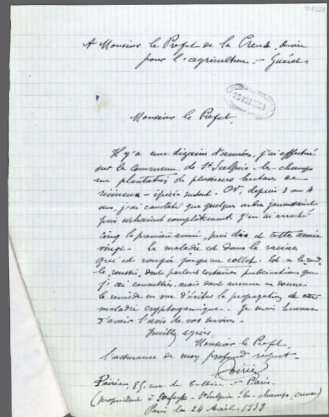 A Monsieur le Préfet de la Creuse,
pour l'agriculture. — Guéret
Monsieur le Préfet,
Il y a une dizaine d'années, j'ai effectué
sur la commune de St Sulpice-les-champs
une plantation de plusieurs hectares de
résineux - épicéa surtout. Or, depuis 3 ou 4
ans, j'ai constaté que quelques arbres jaunissaient
puis séchaient complètement. J'en ai arraché
cinq la première année, puis dix et cette année
vingt. La maladie est dans la racine
qui est rongée jusqu'au collet.
dont parlent certaines publications que
j'ai consultées, mais dont aucune ne donne
le remède en vue d'éviter la propagation de cette
maladie cryptogamique. Je serais heureux
d'avoir l'avis de vos services.
Veuillez agréer,
Monsieur le Préfet,
l'assurance de mon profond respect.
85, rue de — Paris.
(propriétaire à St Sulpice-les-champs, Creuse)
Paris le 24 Avril